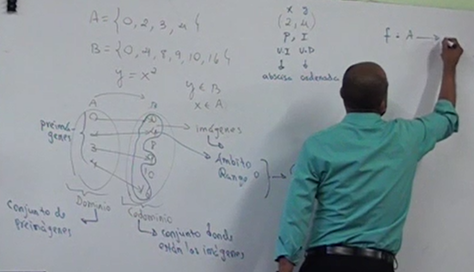 A = {0, 2, 3, 4}
B = {0, 4, 8, 9, 10, 16}
y = x²
y ∈ B
x ∈ A
x y
(2, 4)
P, I
V.I V.D
abscisa ordenada
f : A →
A B
preimágenes
0
2
3
4
8
10
imágenes
Ámbito
Rango o
Dominio
Codominio
Conjunto de
preimágenes
conjunto donde
están las imágenes